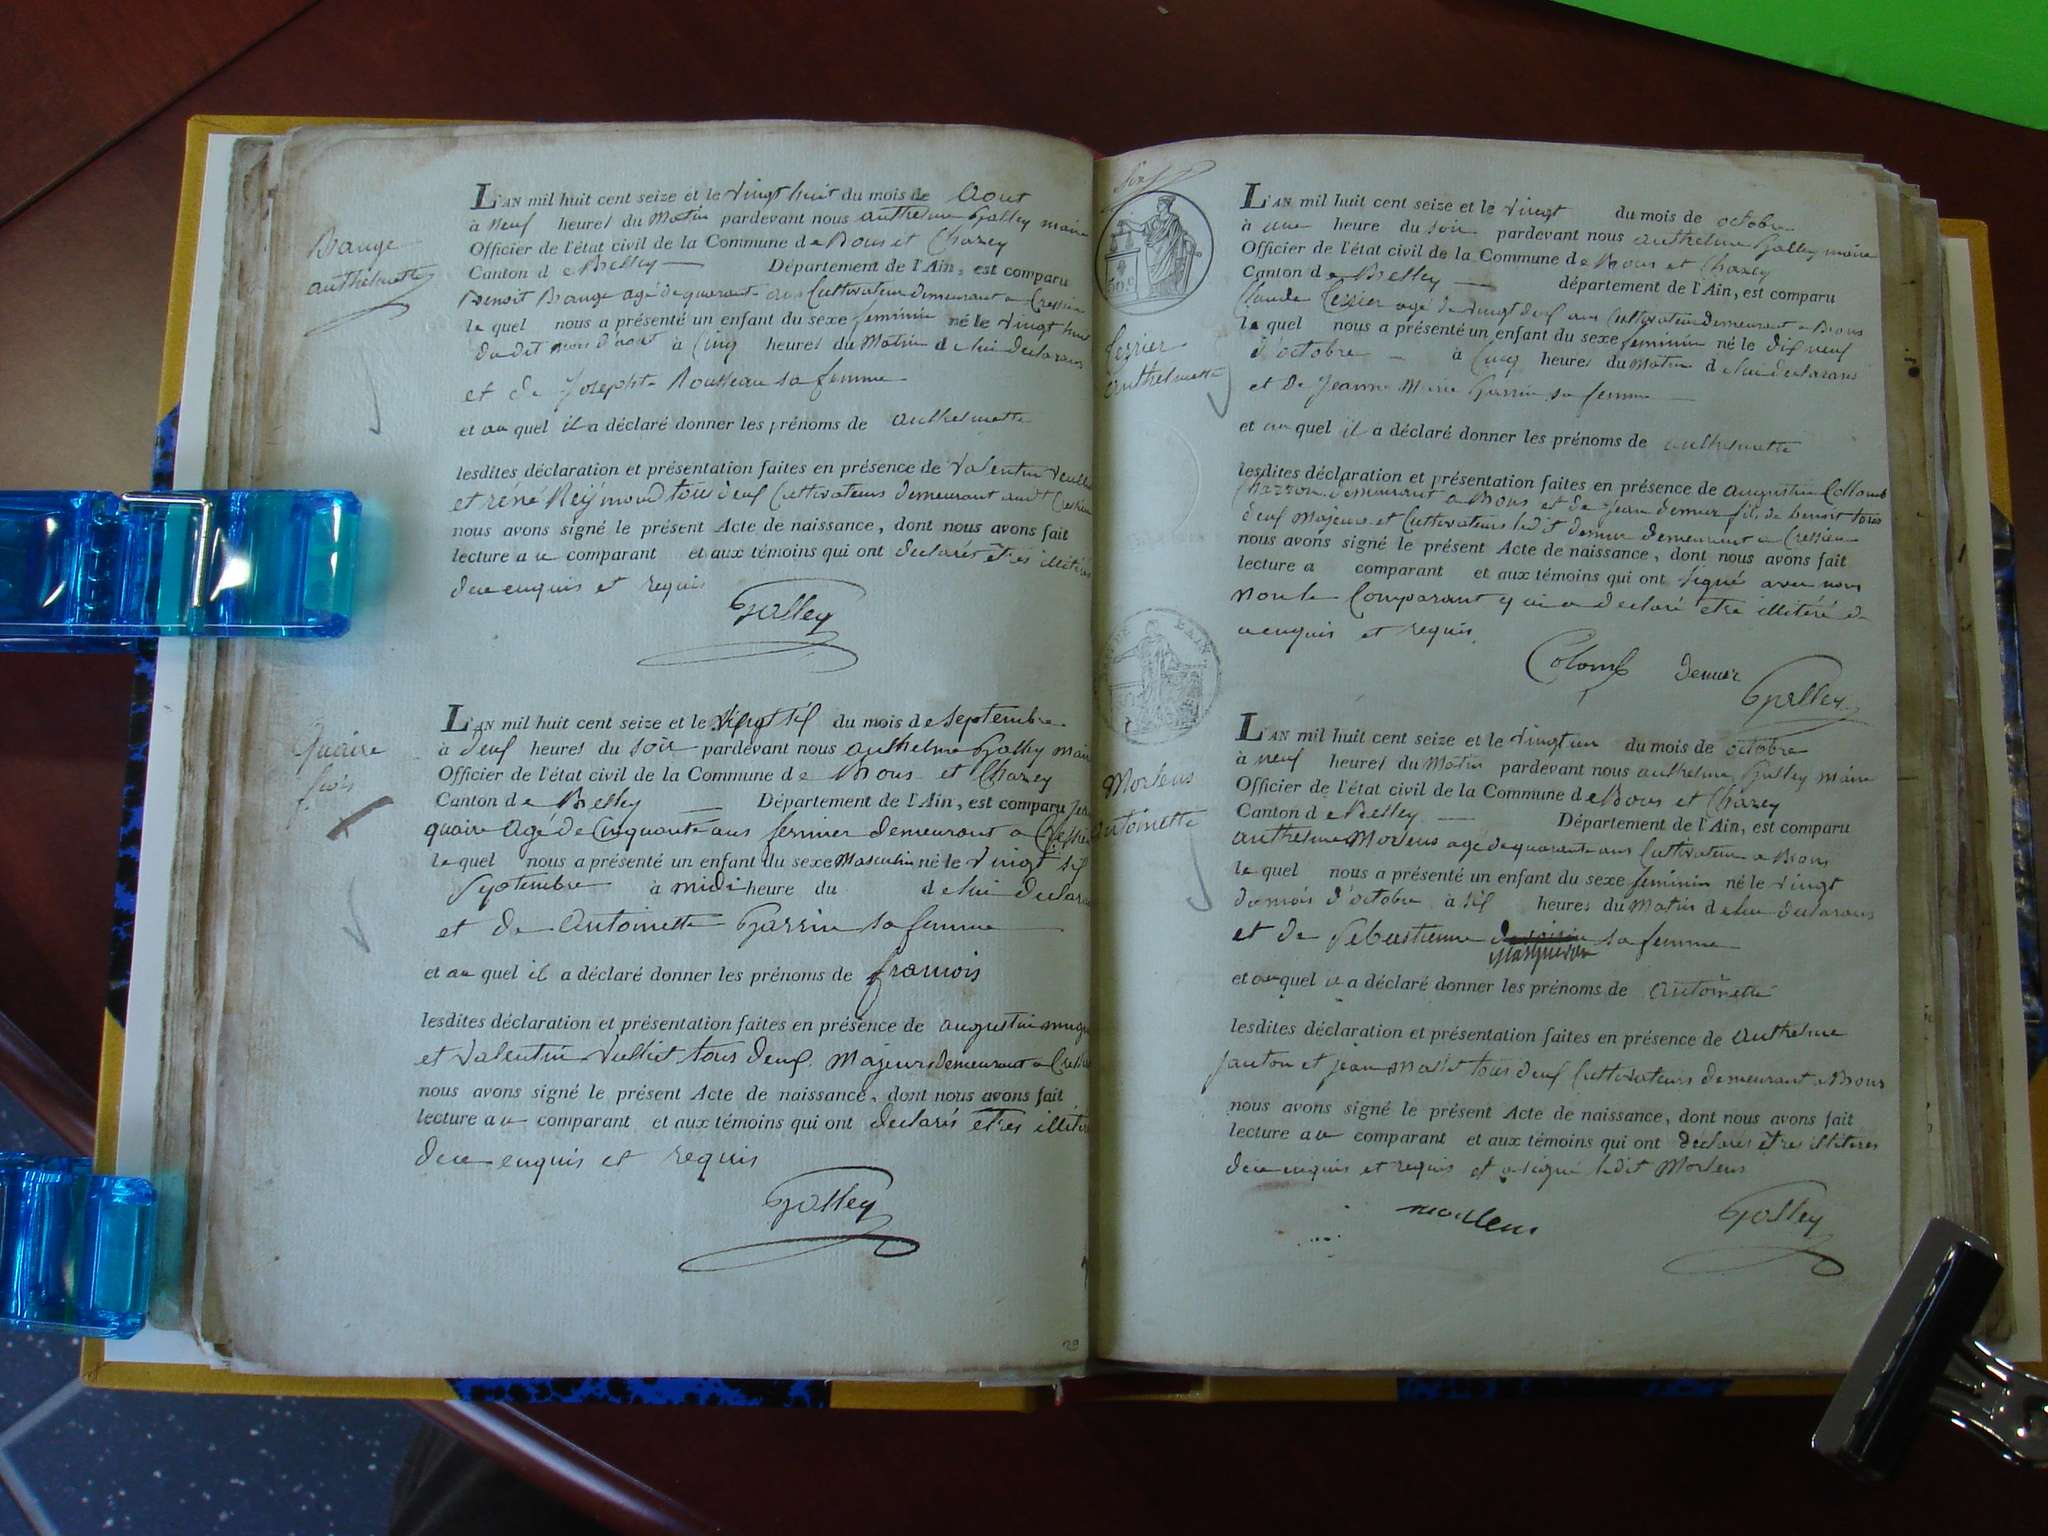 Bange
anthelmette
L'AN mil huit cent seize et le vingt huit du mois de Aout
à neuf heures du Matin pardevant nous anthelme Galley maire
Officier de l'état civil de la Commune de Bons et Chazey
Canton de Belley Département de l'Ain, est comparu
Benoit Bange agé de quarante ans Cultivateur demeurant a Cressieu
le quel nous a présenté un enfant du sexe feminin né le vingt huit
du dit mois d'aout à Cinq heures du Matin de lui declarant
et de Josephte Rousseau sa femme
et au quel il a déclaré donner les prénoms de anthelmette
lesdites déclaration et présentation faites en présence de Valentin
et réné Reymond tous deux Cultivateurs demeurant audt Cressieu
nous avons signé le présent Acte de naissance, dont nous avons fait
lecture au comparant et aux témoins qui ont declarés etres illitérés
de ce enquis et requis
Galley
quaire
fcois
L'AN mil huit cent seize et le vingt six du mois de septembre
à deux heures du soir pardevant nous anthelme Galley maire
Officier de l'état civil de la Commune de Bons et Chazey
Canton de Belley Département de l'Ain, est comparu Jean
quaire Agé de Cinquante ans fermier demeurant a Cressieu
le quel nous a présenté un enfant du sexe Masculin né le vingt six
Septembre à midi heure du de lui declarant
et de Antoinette Garrin sa femme
et au quel il a déclaré donner les prénoms de francois
lesdites déclaration et présentation faites en présence de augustin
et Valentin Vulliet tous deux Majeurs demeurant a Cressieu
nous avons signé le présent Acte de naissance, dont nous avons fait
lecture au comparant et aux témoins qui ont declarés etres illitérés
de ce enquis et requis
Galley
29
six
50 c
terrier
anthelmette
L'AN mil huit cent seize et le vingt du mois de octobre
à une heure du soir pardevant nous anthelme Galley maire
Officier de l'état civil de la Commune de Bons et Chazey
Canton de Belley département de l'Ain, est comparu
Claude terrier agé de vingt deux ans Cultivateur demeurant a Bons
le quel nous a présenté un enfant du sexe feminin né le dix neuf
d'octobre à Cinq heures du Matin de lui declarant
et de Jeanne Marie Garrin sa femme
et au quel il a déclaré donner les prénoms de anthelmette
lesdites déclaration et présentation faites en présence de augustin Collomb
Charron demeurant a Bons et de Jean demur fils de benoit tous
deux Majeurs et Cultivateurs ledit demur demeurant a Cressieu
nous avons signé le présent Acte de naissance, dont nous avons fait
lecture a comparant et aux témoins qui ont signé avec nous
non le Comparant qui a declaré etre illitéré de
ce enquis et requis
Colomb demur
Galley
DE L'AIN
Morlens
antoinette
L'AN mil huit cent seize et le vingt un du mois de octobre
à neuf heures du Matin pardevant nous anthelme Galley maire
Officier de l'état civil de la Commune de Bons et Chazey
Canton de Belley Département de l'Ain, est comparu
anthelme Morlens agé de quarante ans Cultivateur a Bons
le quel nous a présenté un enfant du sexe feminin né le vingt
du mois d'octobre à six heures du Matin de lui declarant
et de Sebastienne sa femme
et au quel il a déclaré donner les prénoms de antoinette
lesdites déclaration et présentation faites en présence de anthelme
Janton et jean Massit tous deux Cultivateurs demeurant a Bons
nous avons signé le présent Acte de naissance, dont nous avons fait
lecture au comparant et aux témoins qui ont declarés etres illitérés
de ce enquis et requis et a signé ledit Morlens
morlens Galley